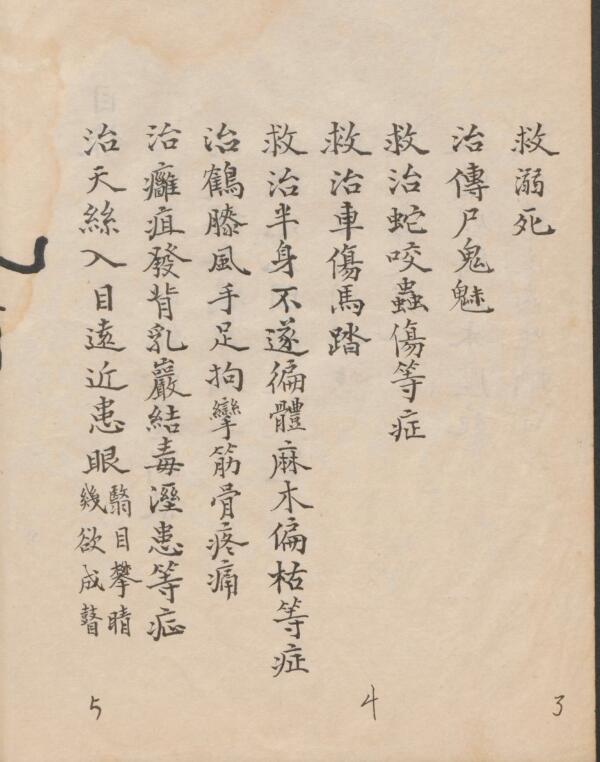 救溺死
治傳尸鬼魅
救治蛇咬蟲傷等症
救治車傷馬踏
救治半身不遂徧體麻木偏枯等症
治鶴膝風手足拘攣筋骨疼痛
治癰疽發背乳巖結毒溼患等症
治天絲入目遠近患眼翳目攀睛幾欲成瞽
3
4
5